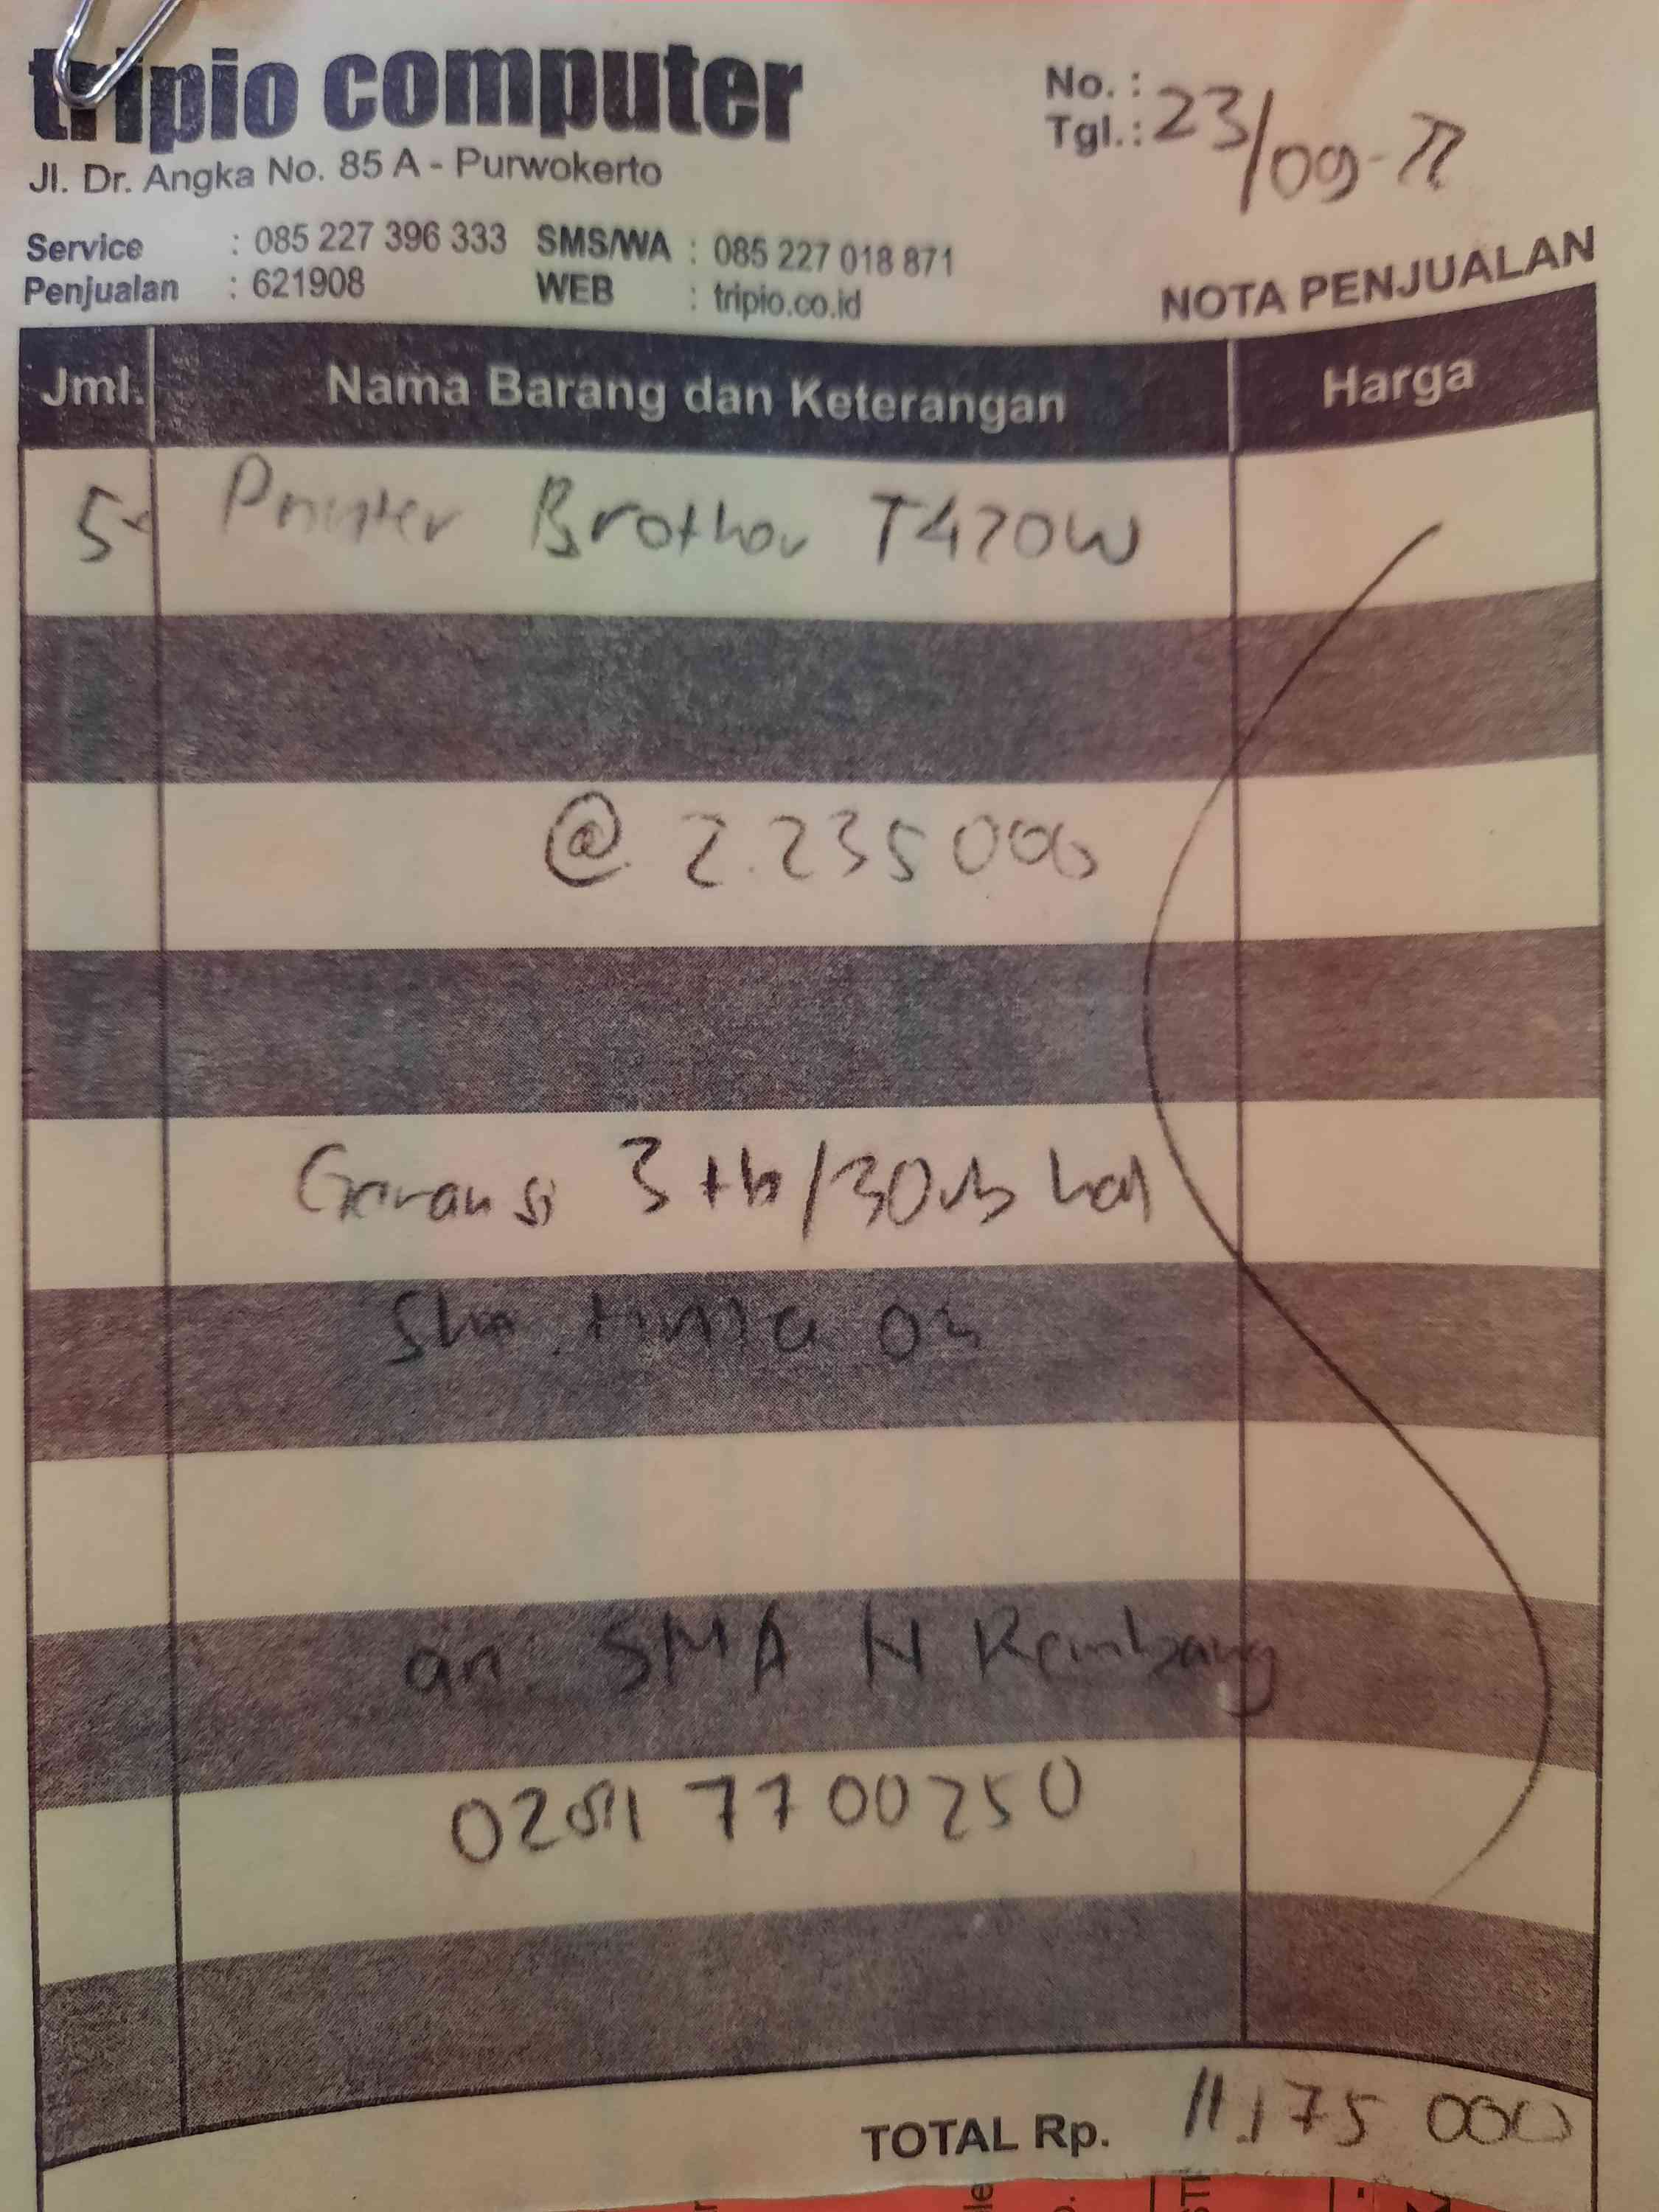 tripio computer
No. :
Tgl. : 23/09-22
Jl. Dr. Angka No. 85 A - Purwokerto
Service : 085 227 396 333 SMS/WA : 085 227 018 871
Penjualan : 621908 WEB : tripio.co.id
NOTA PENJUALAN
Jml. Nama Barang dan Keterangan Harga
5 Printer Brother T420W
@ 2.235 000
Garansi 3 th/30rb hal
tinta
an. SMA N Rembang
0281 7700250
TOTAL Rp. 11.175 000